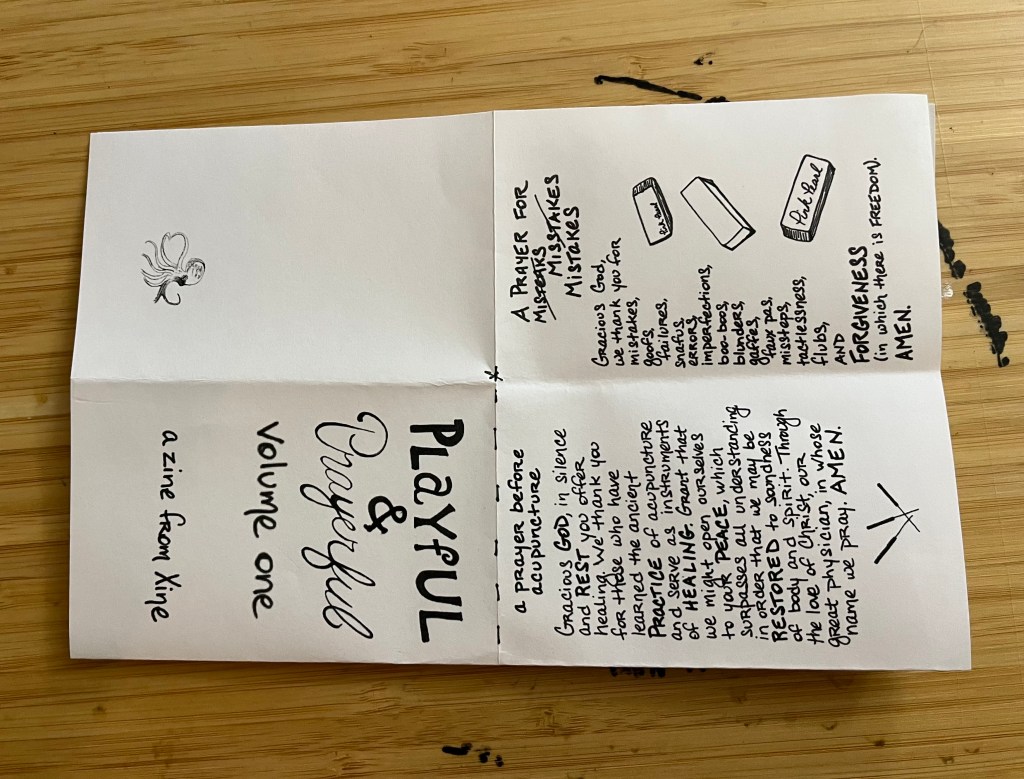 PLAYFUL
&
Prayerful
Volume one
a zine from Xine
a prayer before
acupuncture
Gracious GOD, in silence
and REST you offer
healing. We thank you
for those who have
learned the ancient
PRACTICE of acupuncture
and serve as instruments
of HEALING. Grant that
we might open ourselves
to your PEACE, which
surpasses all understanding
in order that we may be
RESTORED to soundness
of body and spirit. Through
the love of Christ, our
great physician, in whose
name we pray, AMEN.
A PRAYER FOR
MISTEAKS MISSTAKES
MISTAKES
Gracious God,
we thank you for
mistakes,
goofs,
failures,
snafus,
errors,
imperfections,
boo-boos,
blunders,
gaffes,
faux pas,
missteps,
tactlessness,
flubs,
AND
FORGIVENESS
(in which there is FREEDOM).
AMEN.
Pink Pearl
Pink Pearl